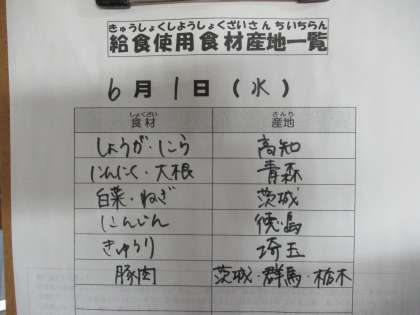 きゅうしょくしようしょくざいさんちいちらん
給食使用食材産地一覧
6月1日(水)
しょくざい さんち
食材 産地
しょうが・にら 高知
にんにく・大根 青森
白菜・ねぎ 茨城
にんじん 徳島
きゅうり 埼玉
豚肉 茨城・群馬・栃木